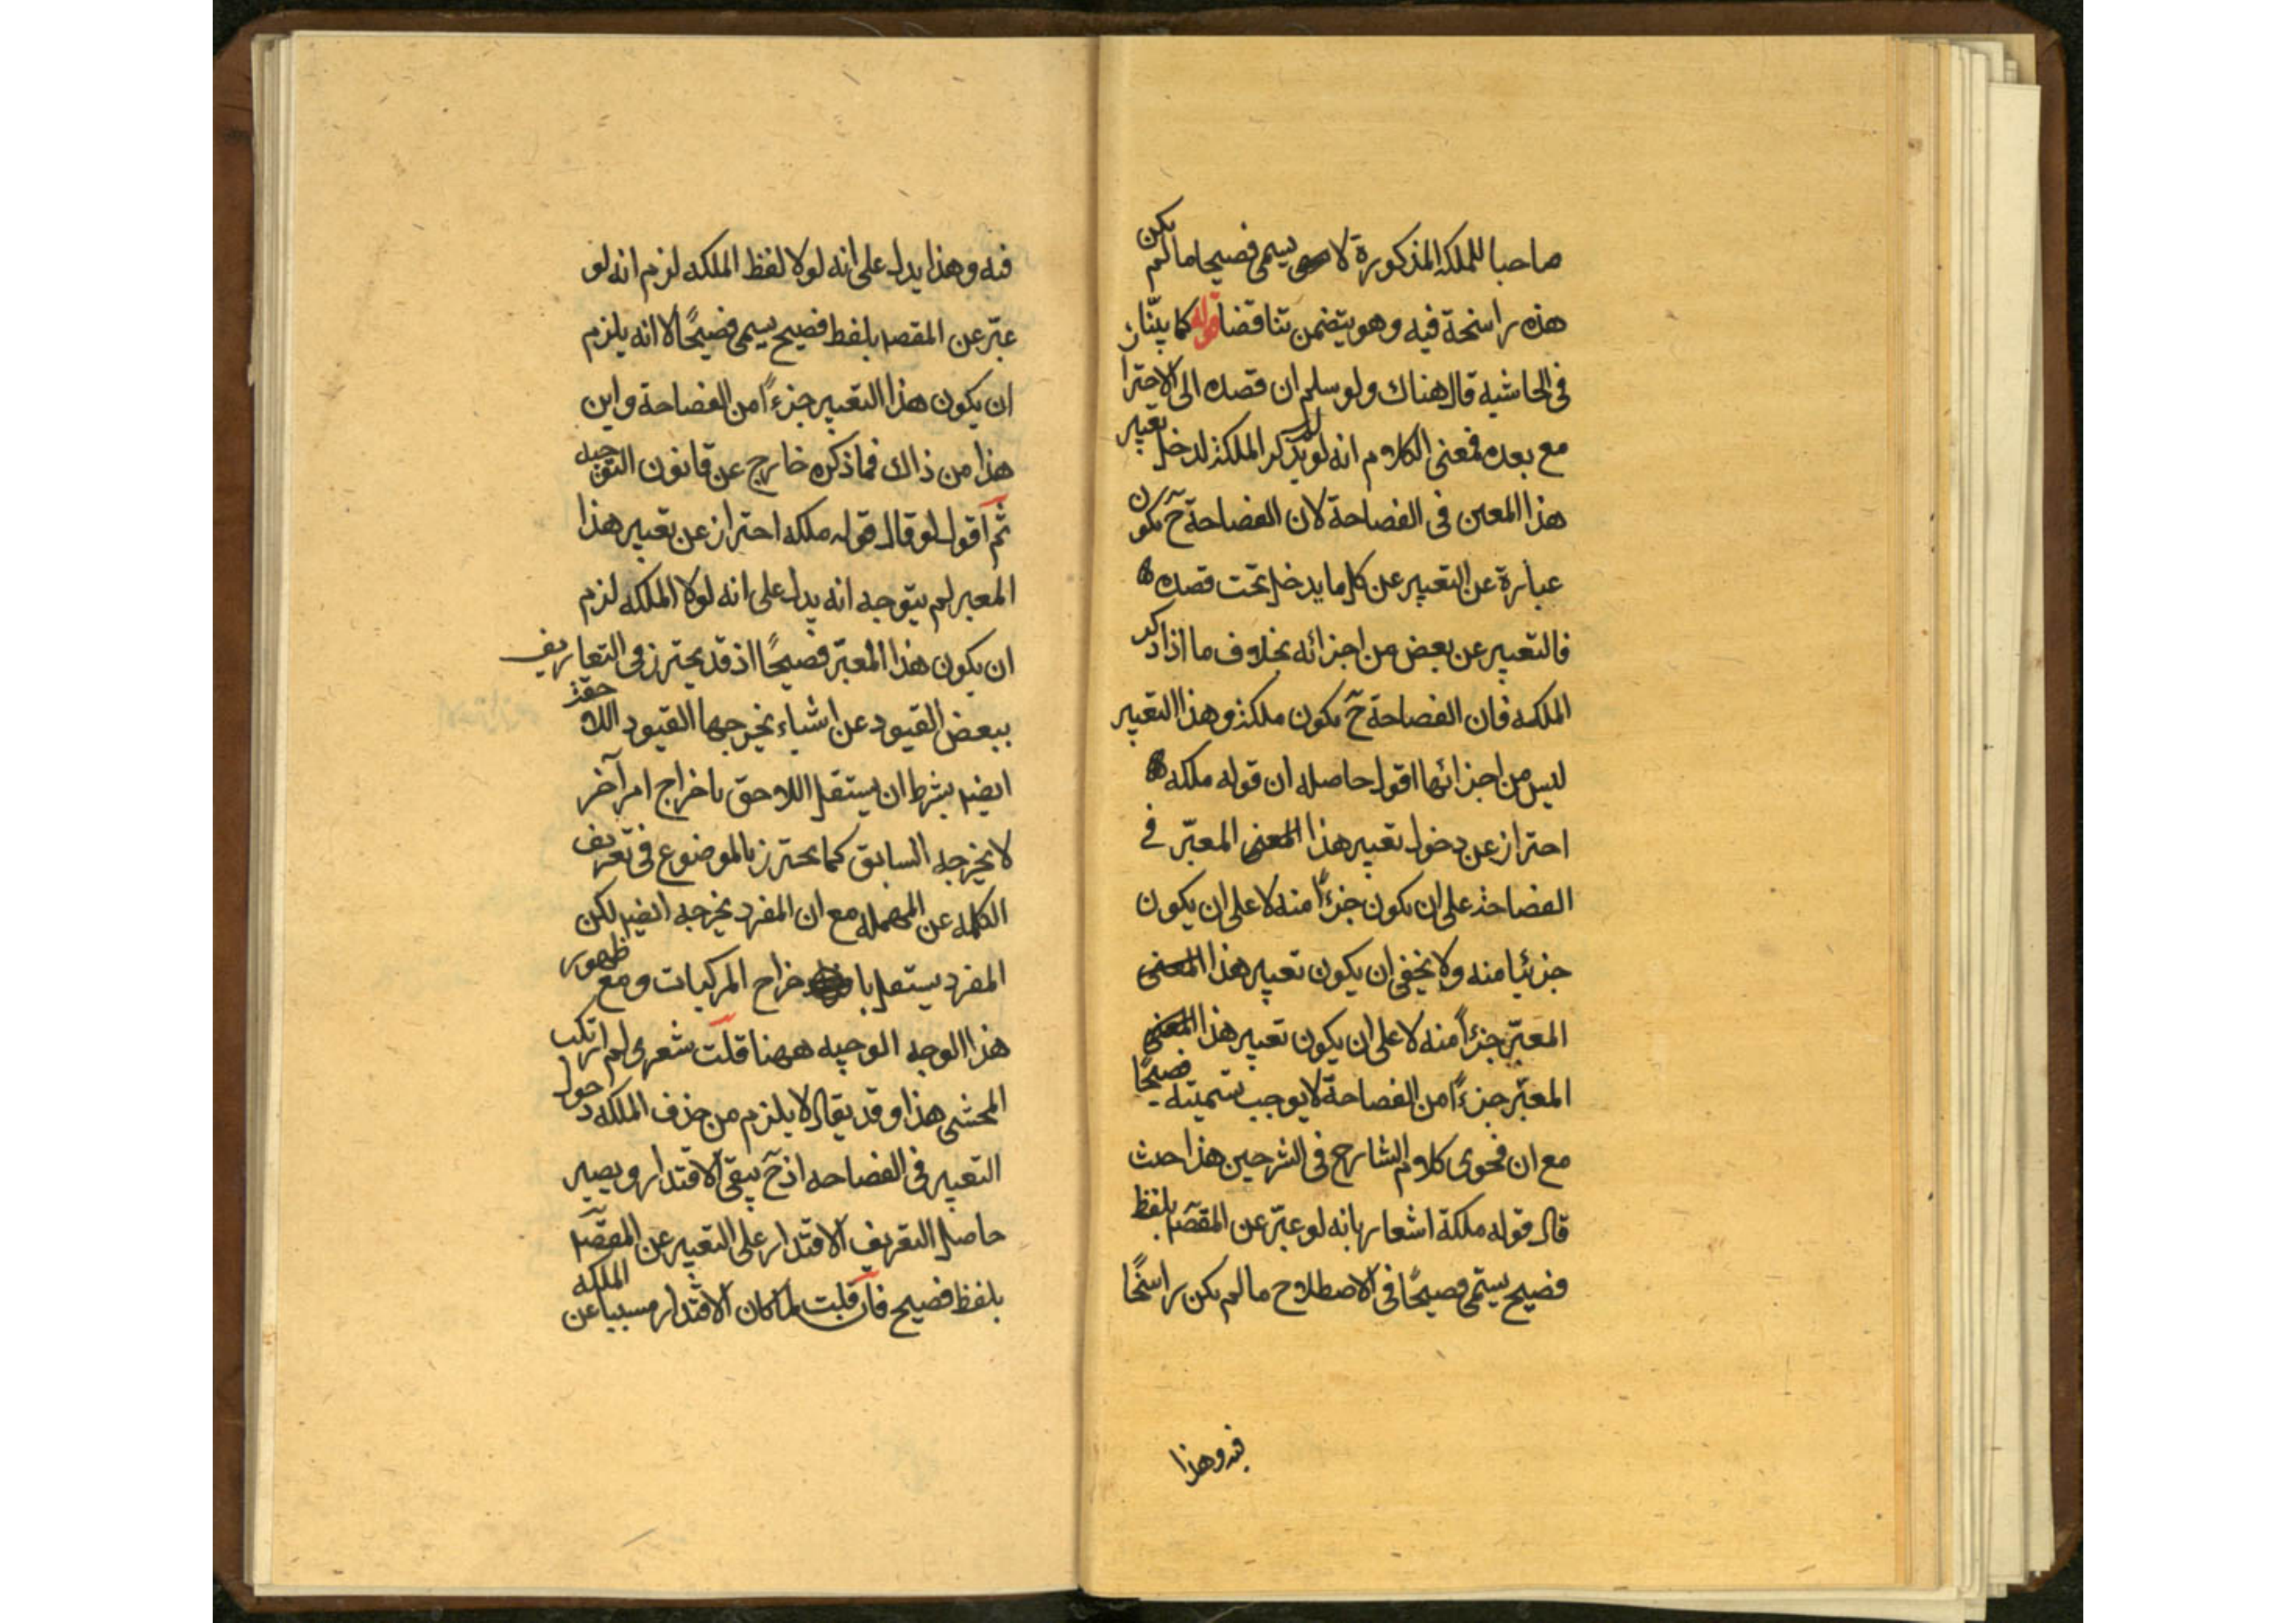 صاحبا للملكة المذكورة لا يسمى فصيحا ما لم يكن
هذه راسخة فيه وهو يتضمن تناقضا قوله كما بيّنا ز
فى الحاشيه قال هناك ولو سلم ان قصده الى الاحترا
مع بعده فمعنى الكلام انه لو لم يذكر الملكة لدخل تعبير
هذا المعين فى الفصاحة لان الفصاحة ح تكون
عبارة عن التعبير عن كل ما يدخل تحت قصده
فالتعبير عن بعض من اجزائه بخلاف ما اذا ذكر
الملكه فان الفصاحة ح تكون ملكة وهذا التعبير
ليس من اجزائها اقول حاصله ان قوله ملكه
احتراز عن دخول تعبير هذا المعنى المعبّر فى
الفصاحة على ان يكون جزءًا منه لا على ان يكون
جزئيا منه ولا يخفى ان يكون تعبير هذا المعنى
المعبّر جزءاً منه لا على ان يكون تعبير هذا المعنى
المعبّر جزءًا من الفصاحة لا يوجب تسميته فصيحًا
مع ان فحوى كلام الشارح فى الشرحين هذا حيث
قال قوله ملكة اشعار بانه لو عبّر عن المقصد بلفظ
فصيح يسمّى فصيحًا فى الاصطلاح ما لم يكن راسخًا
فيه وهذا
فيه وهذا يدل على انه لولا لفظ الملكه لزم انه لو
عبّر عن المقصد بلفظ فصيح يسمى فصيحًا لا انه يلزم
ان يكون هذا التعبير جزءًا من الفصاحة واين
هذا من ذاك فما ذكره خارج عن قانون التوجيه
ثم اقول لو قال قوله ملكه احتراز عن تعبير هذا
المعبر لم يتوجه انه يدل على انه لولا الملكه لزم
ان يكون هذا المعبّر فصيحًا اذ قد يحترز فى التعاريف
ببعض القيود عن اشياء يخرجها القيود اللاحقة
ايضا بشرط ان يستقل اللاحق باخراج امر آخر
لا يخرجه السابق كما يحترز بالموضوع فى تعريف
الكلمه عن المهمله مع ان المفرد يخرجه ايضا لكن
المفرد يستقل باخراج المركبات ومع ظهور
هذا الوجه الوجيه ههنا قلت شعرى لم ارتكب
المحشى هذا وقد يقال لا يلزم من حذف الملكه دخول
التعبير فى الفصاحه اذ ح يبقى الاقتدار ويصير
حاصل التعريف الاقتدار على التعبير عن المقصد
بلفظ فصيح فان قلت لما كان الاقتدار مسببا عن الملكه